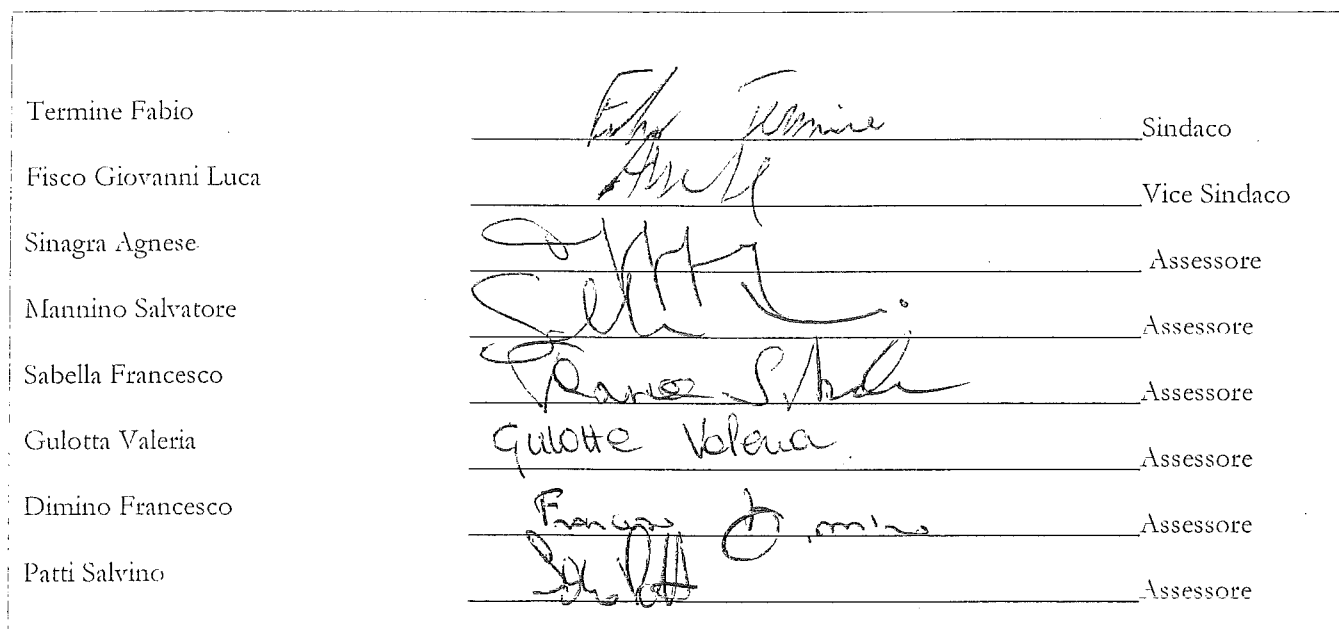 Termine Fabio Fabio Termine Sindaco
Fisco Giovanni Luca Vice Sindaco
Sinagra Agnese Assessore
Mannino Salvatore Assessore
Sabella Francesco Assessore
Gulotta Valeria Gulotta Valeria Assessore
Dimino Francesco Francesco Dimino Assessore
Patti Salvino Assessore